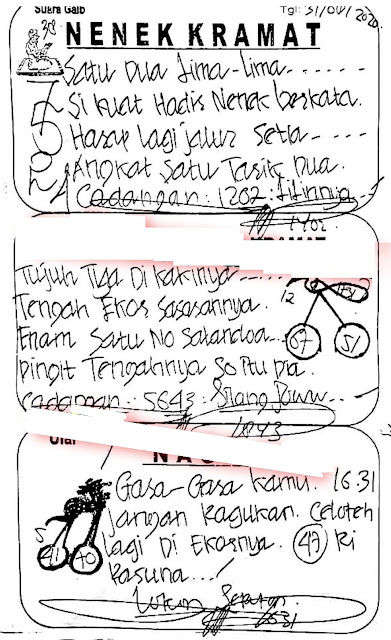 Suara Gaib
Tgl: 31/001/2020
NENEK KRAMAT
Satu Dua Lima-Lima
Si kuat Hadis Nenek berkata.
Harap lagi jalur Setia
Angkat Satu Tasik Dua.
Cadangan: 1202. Titinnya
KRAMAT
Tujuh Tiga Di kakinya
Tengah Ekor Sasasannya.
12
Enam Satu No Satandoa
67 51
pingit Tengahnya So Itu Dia
Cadangan: 5643
1843
NA
Gasa-Gasa kamu. 1631
Jangan Ragukan. Celoteh
5
lagi Di Ekornya. 47 Ki
41 40
Rasuna
1631